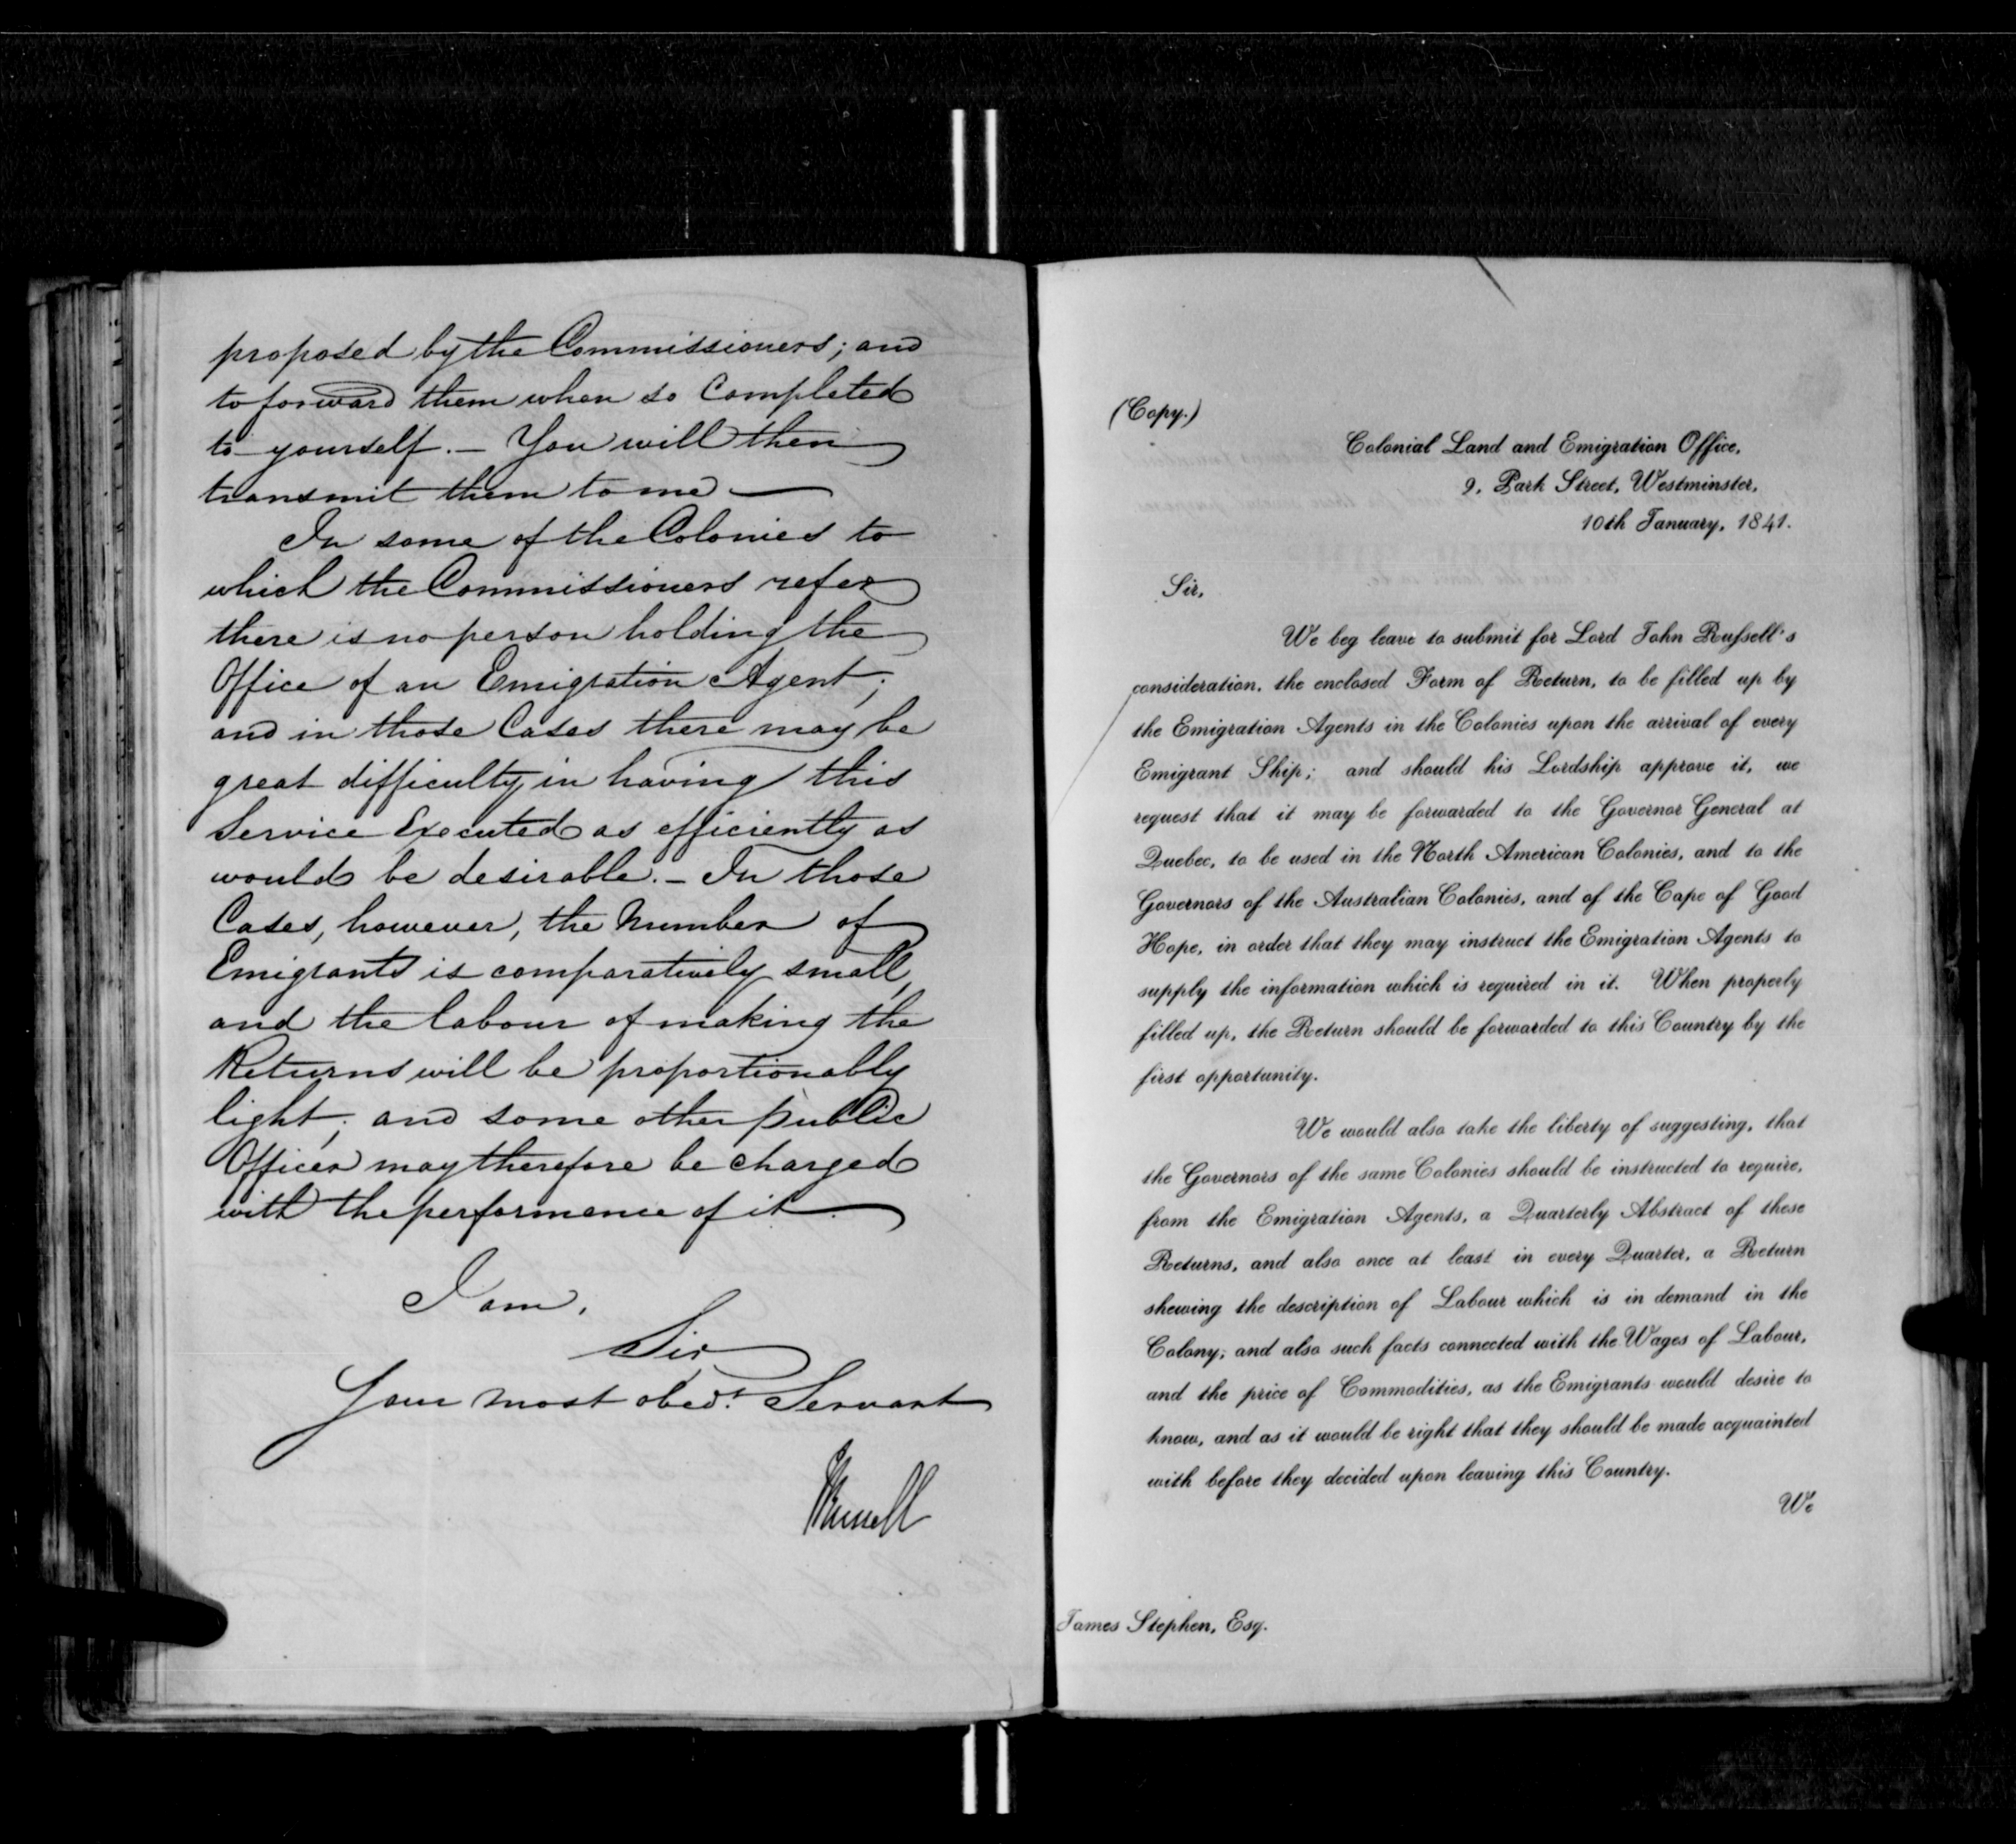 proposed by the Commissioners; and
to forward them when so Completed
to yourself. – You will then
transmit them to me —
In some of the Colonies to
which the Commissioners refer
there is no person holding the
Office of an Emigration Agent;
and in those Cases there may be
great difficulty in having this
Service Executed as efficiently as
would be desirable. – In those
Cases, however, the Number of
Emigrants is comparatively small,
and the labour of making the
Returns will be proportionably
light; and some other public
Officer may therefore be charged
with the performance of it. —
I am,
Sir
Your most obedt. Servant
JRussell
(Copy.)
Colonial Land and Emigration Office,
9, Park Street, Westminster,
10th January, 1841.
Sir,
We beg leave to submit for Lord John Rufsell's
consideration, the enclosed Form of Return, to be filled up by
the Emigration Agents in the Colonies upon the arrival of every
Emigrant Ship; and should his Lordship approve it, we
request that it may be forwarded to the Governor General at
Quebec, to be used in the North American Colonies, and to the
Governors of the Australian Colonies, and of the Cape of Good
Hope, in order that they may instruct the Emigration Agents to
supply the information which is required in it. When properly
filled up, the Return should be forwarded to this Country by the
first opportunity.
We would also take the liberty of suggesting, that
the Governors of the same Colonies should be instructed to require,
from the Emigration Agents, a Quarterly Abstract of these
Returns, and also once at least in every Quarter, a Return
shewing the description of Labour which is in demand in the
Colony; and also such facts connected with the Wages of Labour,
and the price of Commodities, as the Emigrants would desire to
know, and as it would be right that they should be made acquainted
with before they decided upon leaving this Country.
We
James Stephen, Esq.